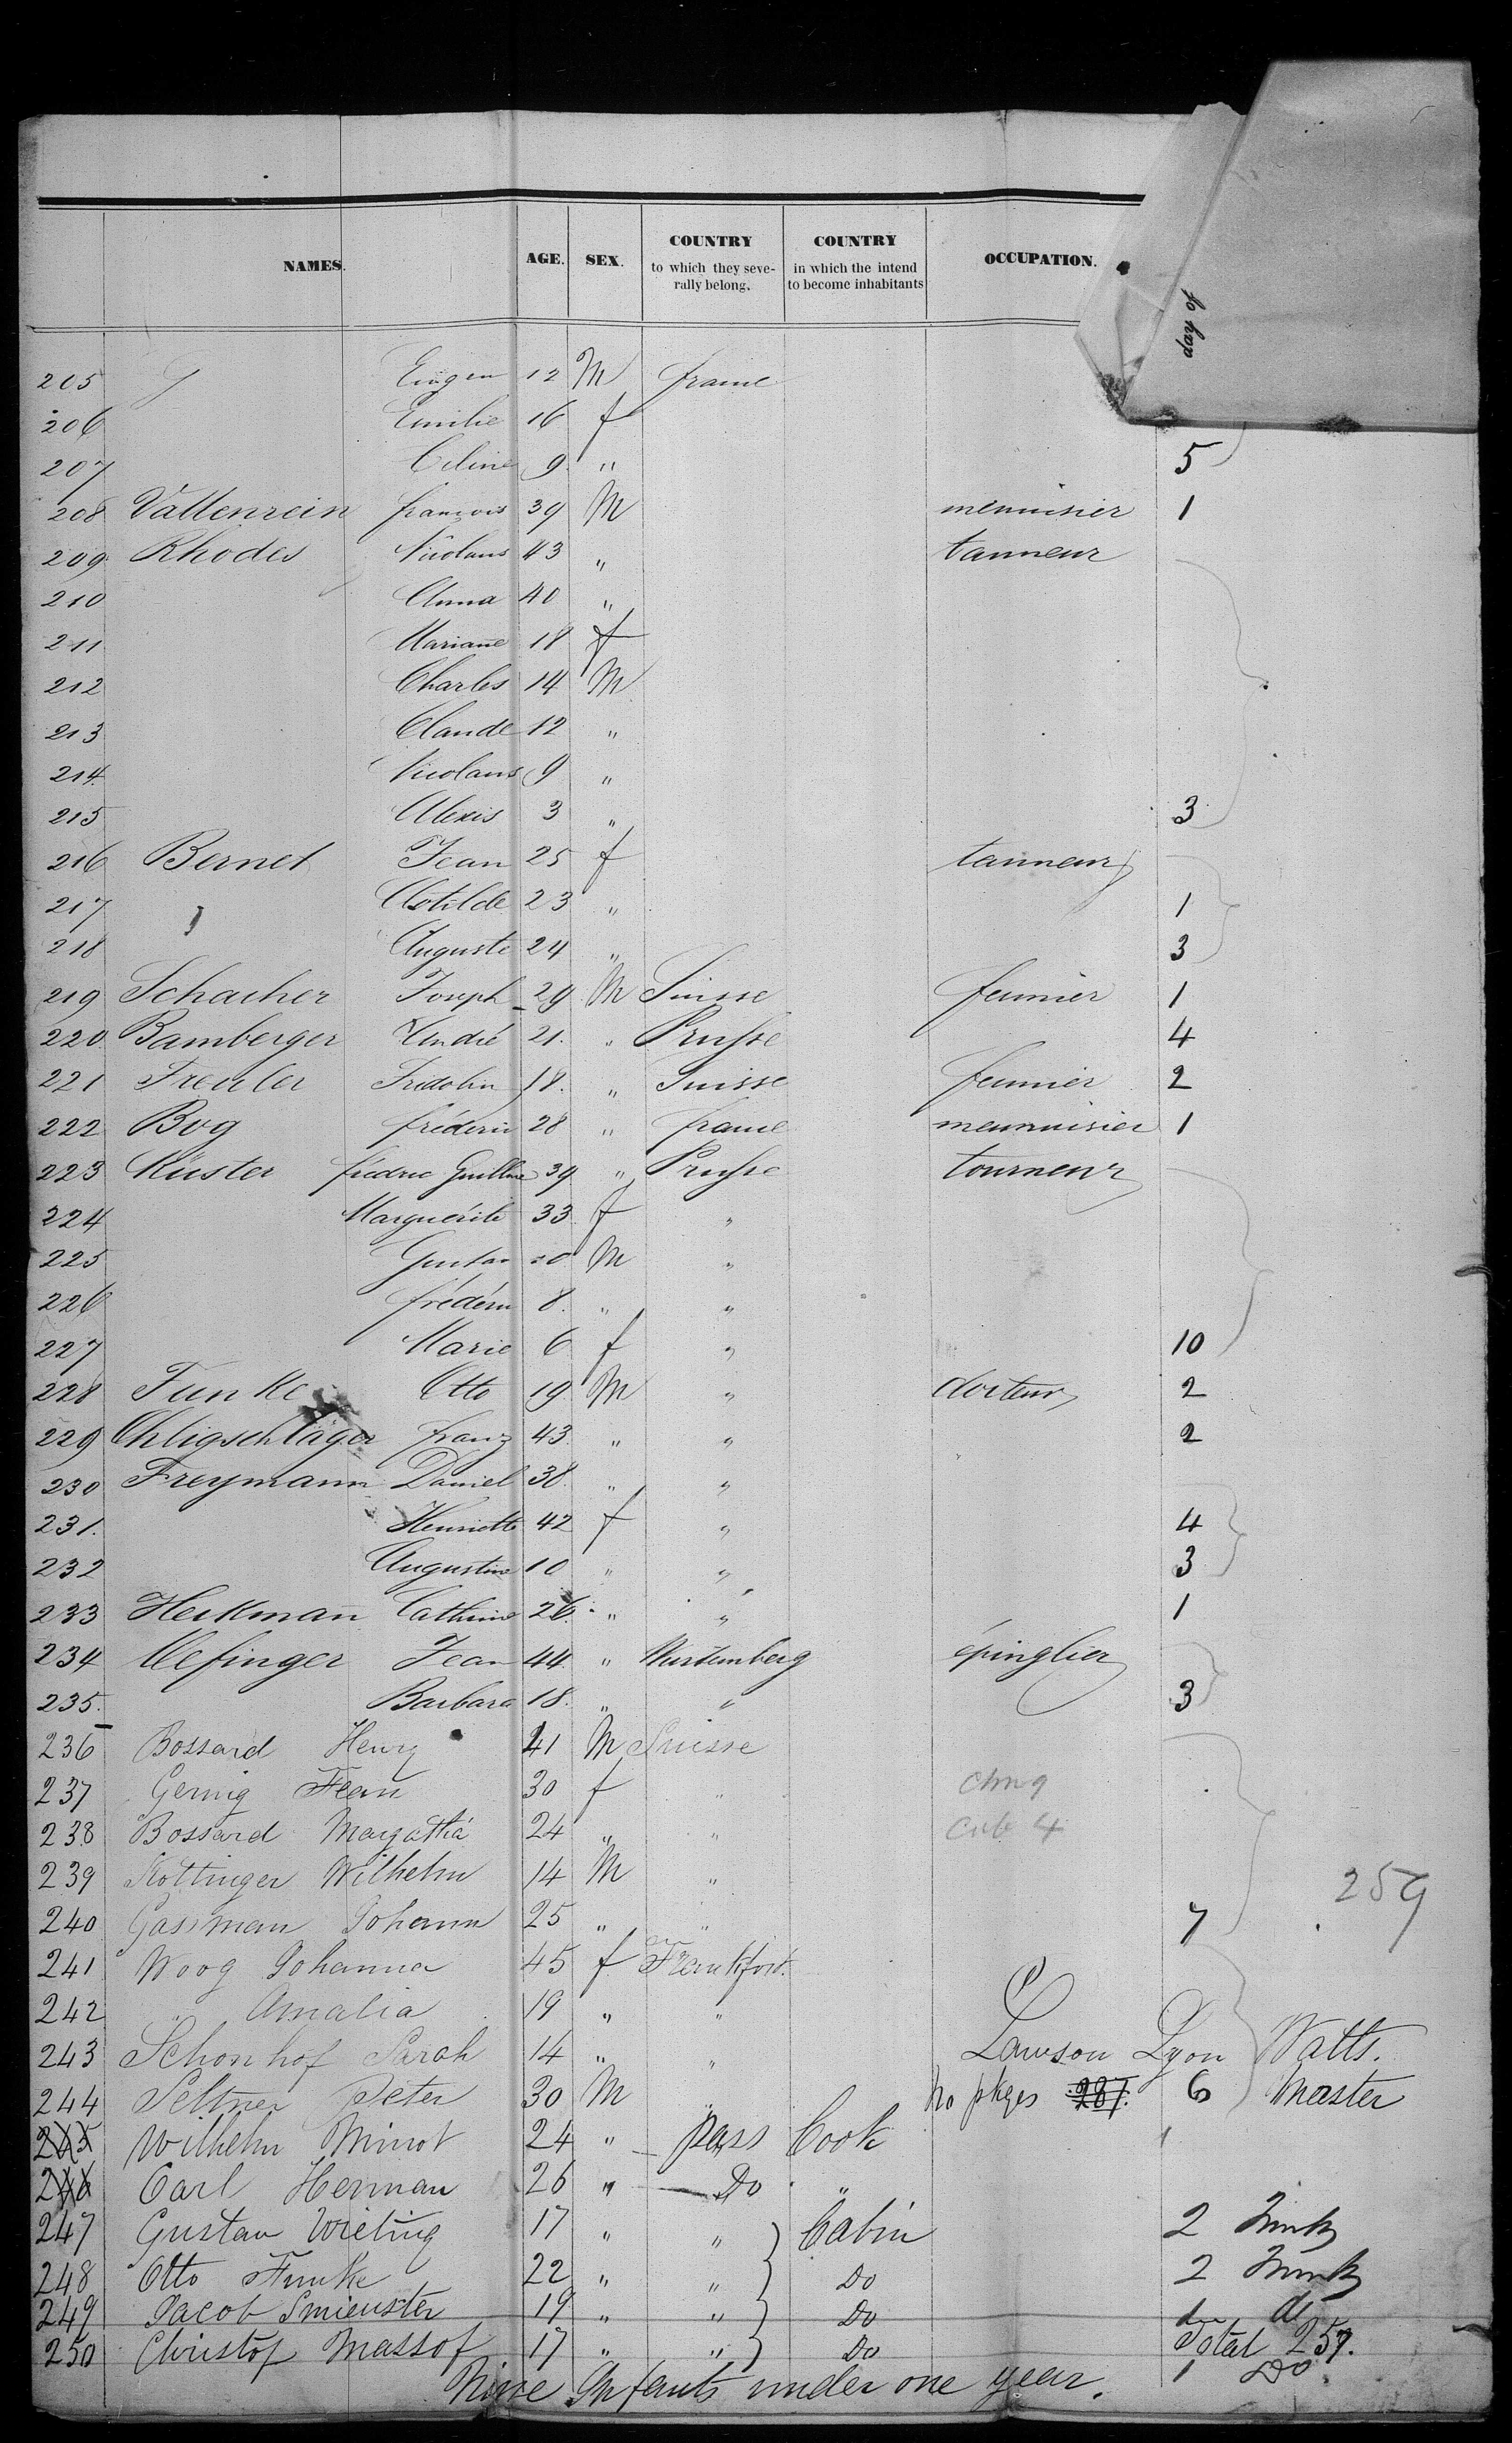 NAMES. AGE. SEX. COUNTRY to which they seve-rally belong. COUNTRY in which the intend to become inhabitants OCCUPATION.
day of
205 Eugen 12 M france
206 Emilie 16 f
207 Celine 9 " 5
208 Vallenrein françois 39 M menuisier 1
209 Rhodes Nicolaus 43 " tanneur
210 Anna 40 "
211 Mariane 18 f
212 Charles 14 M
213 Claude 12 "
214 Nicolaus 9 "
215 Alexis 3 " 3
216 Bernet Jean 25 f tanneur
217 Clotilde 23 " 1
218 Auguste 24 " 3
219 Schacher Joseph 29 M Suisse fermier 1
220 Bamberger André 21. " Prusse 4
221 Freuler Fridolin 18. " Suisse fermier 2
222 Bog fréderic 28 " france menuisier 1
223 Küster fréderic Guillme 39 " Prusse tourneur
224 Marguérite 33 f "
225 Gustav 10 M "
226 fréderic 8. " "
227 Marie 6 f " 10
228 Funke Otto 19 M " docteur 2
229 Ohligschläger franz 43. " " 2
230 Freymann Daniel 38. " "
231. Henriette 42 f " 4
232 Augustine 10 " " 3
233 Heckmann Cathrine 26. " " 1
234 Uefinger Jean 44. " Wurtemberg épinglier
235. Barbara 18. " " 3
236 Bossard Henry 41 M Suisse
237 Gernig Jean 30 f "
238 Bossard Margatha 24 " "
239 Kottinger Wilhelm 14 M "
240 Gassman Johann 25 " " 7
259
241 Woog Johanna 45 f Frankfort.
242 " Amalia 19 " "
243 Schonhof Sarah 14 " " Lawson Lyon Watts.
244 Seltner Peter 30 M " No pkges 287. 6 Master
245 Wilhelm Minot 24 " pass Cook 1
246 Carl Herman 26 " Do "
247 Gustav Wieting 17 " " Cabin 2 Trunks
248 Otto Funke 22 " " Do 2 Trunks
249 Jacob Smienster 19 " " Do 1 do
250 Christof Massof 17 " " Do Total 259.
Nine Infants under one year. 1 Do